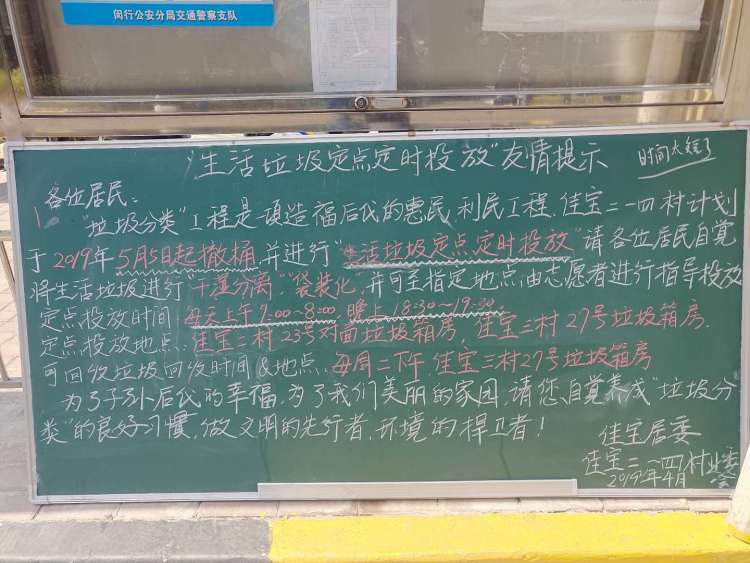 闵行公安分局交通警察支队
"生活垃圾定点定时投放"友情提示
时间太短了
各位居民:
"垃圾分类"工程是一项造福后代的惠民利民工程.佳宝二一四村计划
于2019年5月5日起撤桶,并进行"生活垃圾定点定时投放"请各位居民自觉
将生活垃圾进行"干湿分离""袋装化,并可至指定地点,由志愿者进行指导投放
定点投放时间:每天上午7:00~8:00 晚上18:30~19:30.
定点投放地点:佳宝二村23号对面垃圾箱房,佳宝三村27号垃圾箱房.
可回收垃圾回收时间&地点:每周二下午.佳宝三村27号垃圾箱房
为了子孙后代的幸福,为了我们美丽的家园,请您自觉养成"垃圾分
类"的良好习惯,做文明的先行者,环境的捍卫者!
佳宝居委
佳宝二一四村业委会
2019年4月